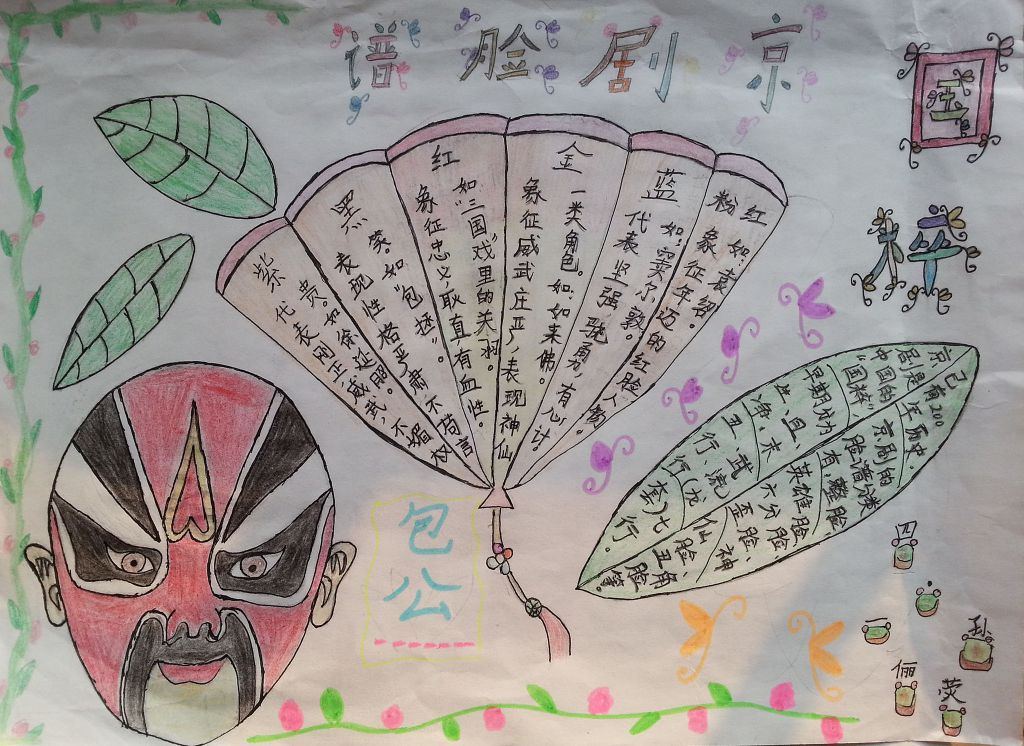 京剧脸谱
国粹
粉红
象征年迈的红脸人物。
如:袁绍。
蓝
代表坚强骁勇,有心计。
如:窦尔敦。
金
象征威武庄严,表现神仙
一类角色。如:如来佛。
红
象征忠义耿直有血性。
如:"三国戏"里的关羽。
黑
表现性格严肃不苟言
笑。如"包拯"。
紫
代表刚正,威武,不媚权
贵。如:徐延昭。
已有200
年历史.
中国的
"国族"
京剧的
脸谱分类
有整脸、
英雄脸、
六分脸、
歪脸、神
仙脸、
丑角
脸等。
生、旦
净、末
丑
包公
四.一
孙俪荧